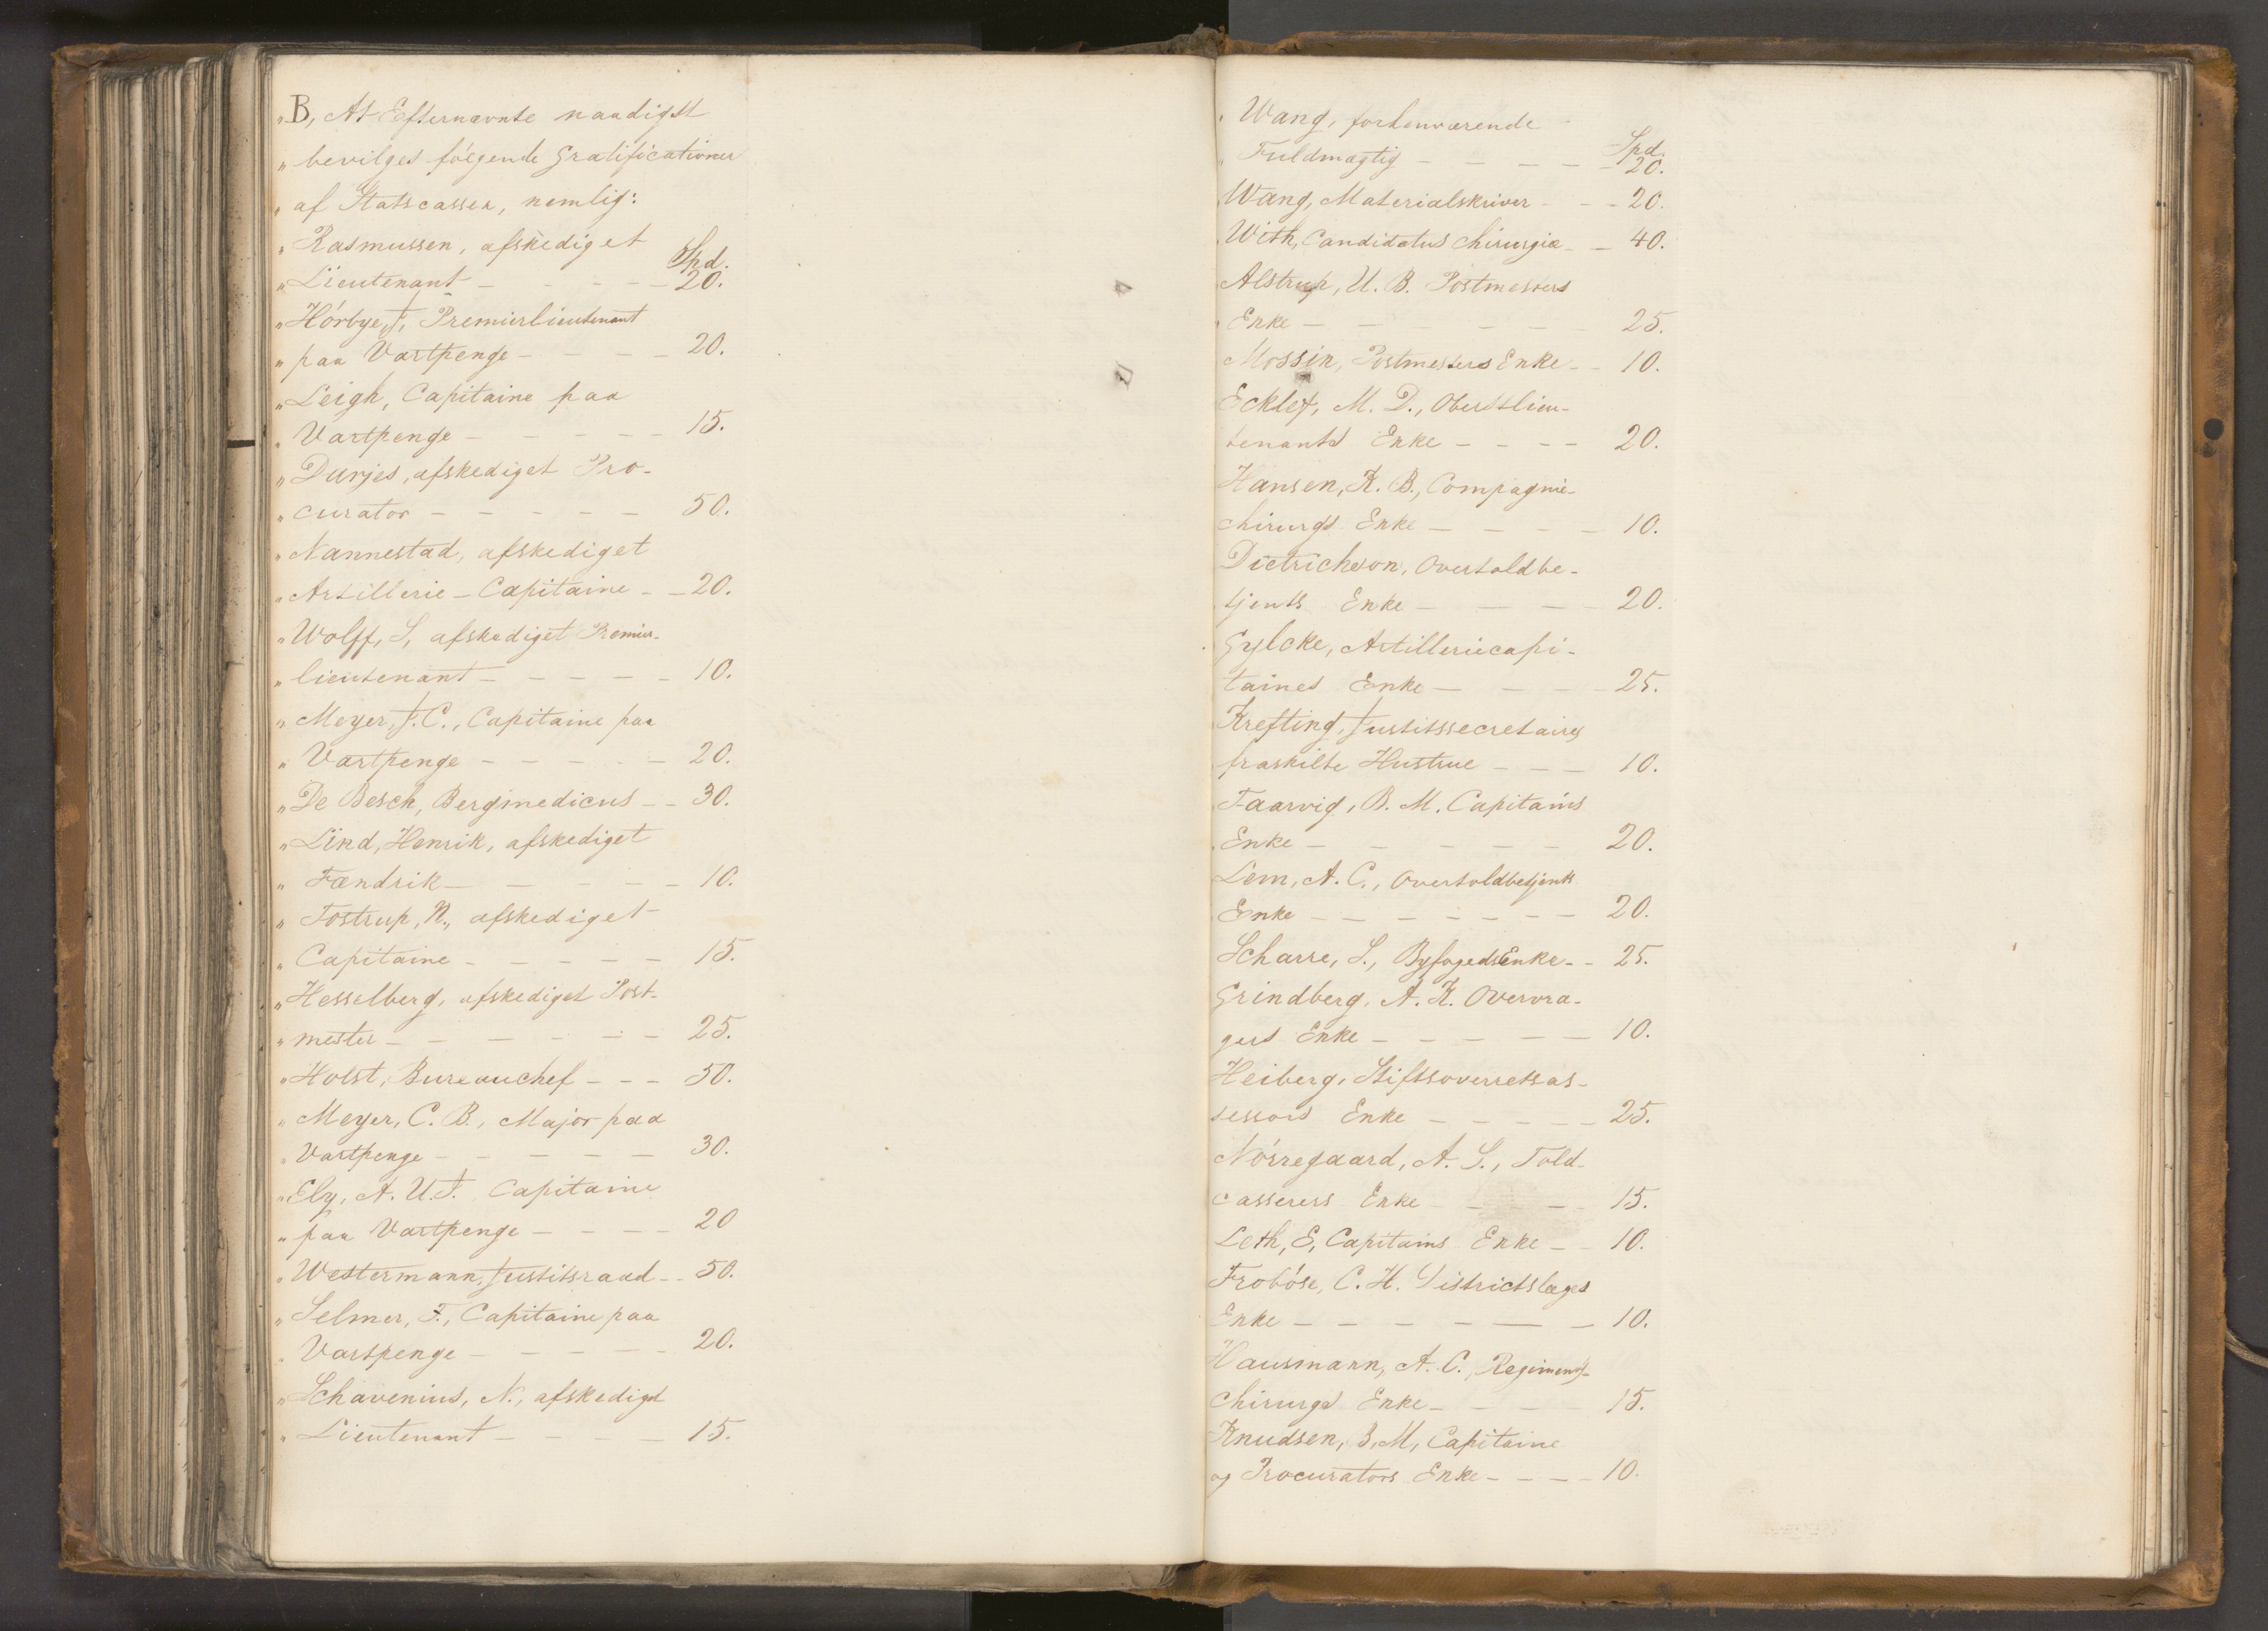 „B, At Efternævnte naadigst
„ bevilges følgende Gratificationer
„ af Statscassen, nemlig:
„ Rasmussen, afskediget
„ Lieutenant – – – – – Spd. 20.
„ Hörbye, J, Premierlieutenant
„ paa Vartpenge – – – – 20.
„ Leigh, Capitaine paa
„ Vartpenge – – – – – 15.
„ Dunjes, afskediget Pro-
„ curator – – – – – 50.
„ Nannestad, afskediget
„ Artillerie-Capitaine – – 20.
„ Wolff, S, afskediget Premier-
„ lieutenant – – – – – 10.
„ Meyer, J. C., Capitaine paa
„ Vartpenge – – – – – 20.
„ De Besch, Bergmedicus – – 30.
„ Lind, Henrik, afskediget
„ Fændrik – – – – – 10.
„ Tostrup, N., afskediget
„ Capitaine – – – – – 15.
„ Hesselberg, afskediget Post-
„ mester – – – – – – 25.
„ Holst, Bureauchef – – – 50.
„ Meyer, C. B., Major paa
„ Vartpenge – – – – – 30.
„ Ely, A. U. J. Capitaine
„ paa Vartpenge – – – – 20
„ Westermann, Justitsraad – – 50.
„ Selmer, F., Capitaine paa
„ Vartpenge – – – – – 20.
„ Schavenius, N., afskediget
„ Lieutenant – – – – 15.
„ Wang, forhenværende
„ Fuldmægtig – – – – – Spd. 20.
Wang, Materialskriver – – – 20.
With, Candidatus chirurgiæ – – 40.
Alstrup, U. B. Postmesters
„ Enke – – – – – – 25.
Mossin, Postmesters Enke – – 10.
Eckleff, M. D., Oberstlieu-
tenants Enke – – – – 20.
Hansen, K. B., Compagnie-
chirurgs Enke – – – – 10.
Dietrichson, Overtoldbe-
tjents Enke – – – – 20.
Gylcke, Artilleriecapi-
taines Enke – – – – 25.
Krefting, Justitssecretairs
fraskilte Hustrue – – – 10.
Faarvig, B. M. Capitains
Enke – – – – – – 20.
Lem, A. C., Overtoldbetjents
Enke – – – – – – – 20.
Scharre, S., Byfogeds Enke – – 25.
Grindberg, A. K. Overvra-
gers Enke – – – – – 10.
Heiberg, Stiftsoverretsas-
sessors Enke – – – – – 25.
Nörregaard, A. S., Told-
casserers Enke – – – – 15.
Leth, E, Capitains Enke – – 10.
Froböse, C. H. Districtslæges
Enke – – – – – – 10.
Hausmann, A. C., Regiments-
chirurgs Enke – – – – 15.
Knudsen, B, M, Capitaine
og Procurators Enke – – – – 10.